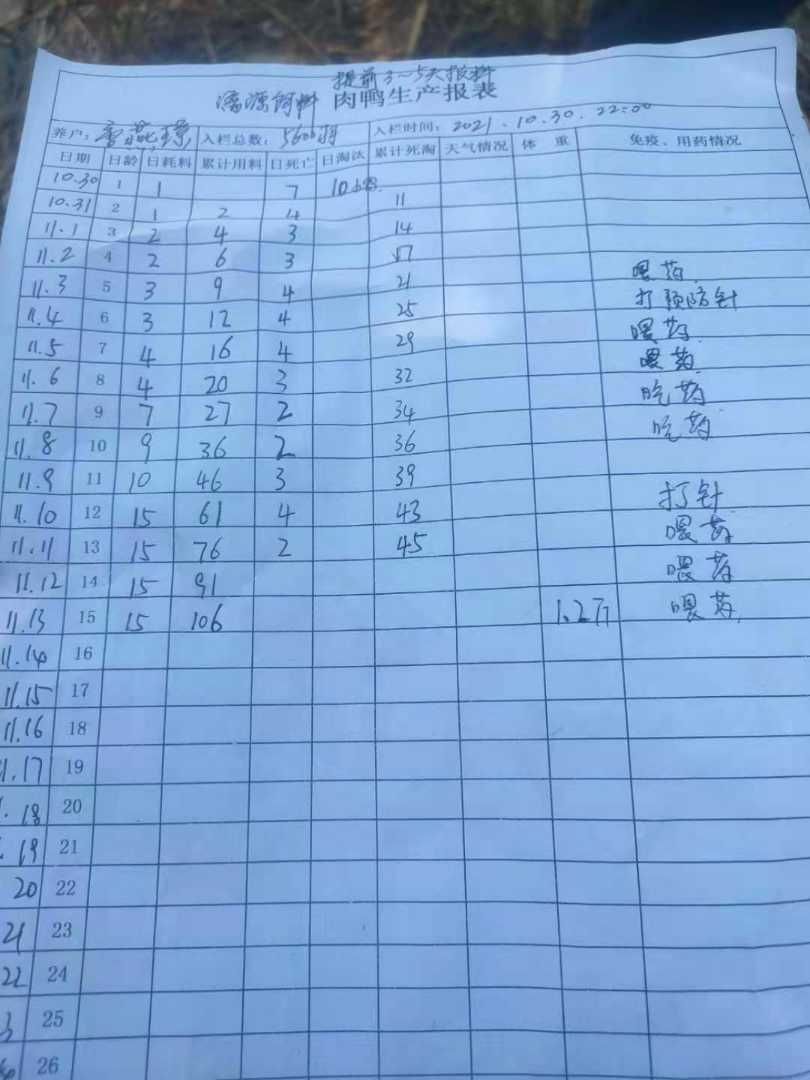 提前3~5天报料
饲料 肉鸭生产报表
养户: 入栏总数: 5600 入栏时间: 2021.10.30.22:00
日期 日龄 日耗料 累计用料 日死亡 日淘汰 累计死淘 天气情况 体 重 免疫、用药情况
10.30 1 1 7 10
10.31 2 1 2 4 11
11.1 3 2 4 3 14
11.2 4 2 6 3 17
11.3 5 3 9 4 21 喂药
11.4 6 3 12 4 25 打预防针
11.5 7 4 16 4 29 喂药
11.6 8 4 20 3 32 喂药
11.7 9 7 27 2 34 吃药
11.8 10 9 36 2 36 吃药
11.9 11 10 46 3 39
11.10 12 15 61 4 43 打针
11.11 13 15 76 2 45 喂药
11.12 14 15 91 喂药
11.13 15 15 106 1.2斤 喂药
11.14 16
11.15 17
11.16 18
11.17 19
18 20
19 21
20 22
21 23
22 24
3 25
26